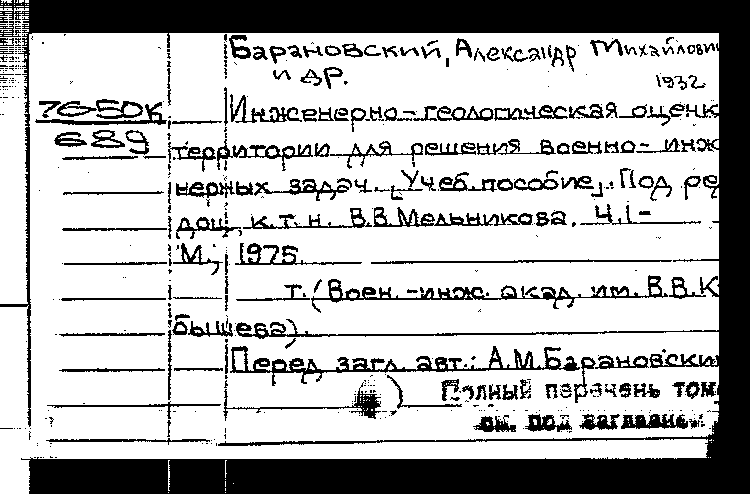 Барановский, Александр Михайлович
и др.
1932
76-50к
689
Инженерно-геологическая оценк
территории для решения военно-инж
нерных задач. [Учеб. пособие]. Под ре
доц. к.т.н. В.В. Мельникова. Ч.1-
М., 1975.
т. (Воен.-инж. акад. им. В.В. К
бышева).
Перед загл. авт.: А.М. Барановски
Полный перечень том
см. под заглавием